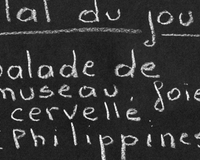 du jou
alade de
museau, foie
cervelle,
Philippines